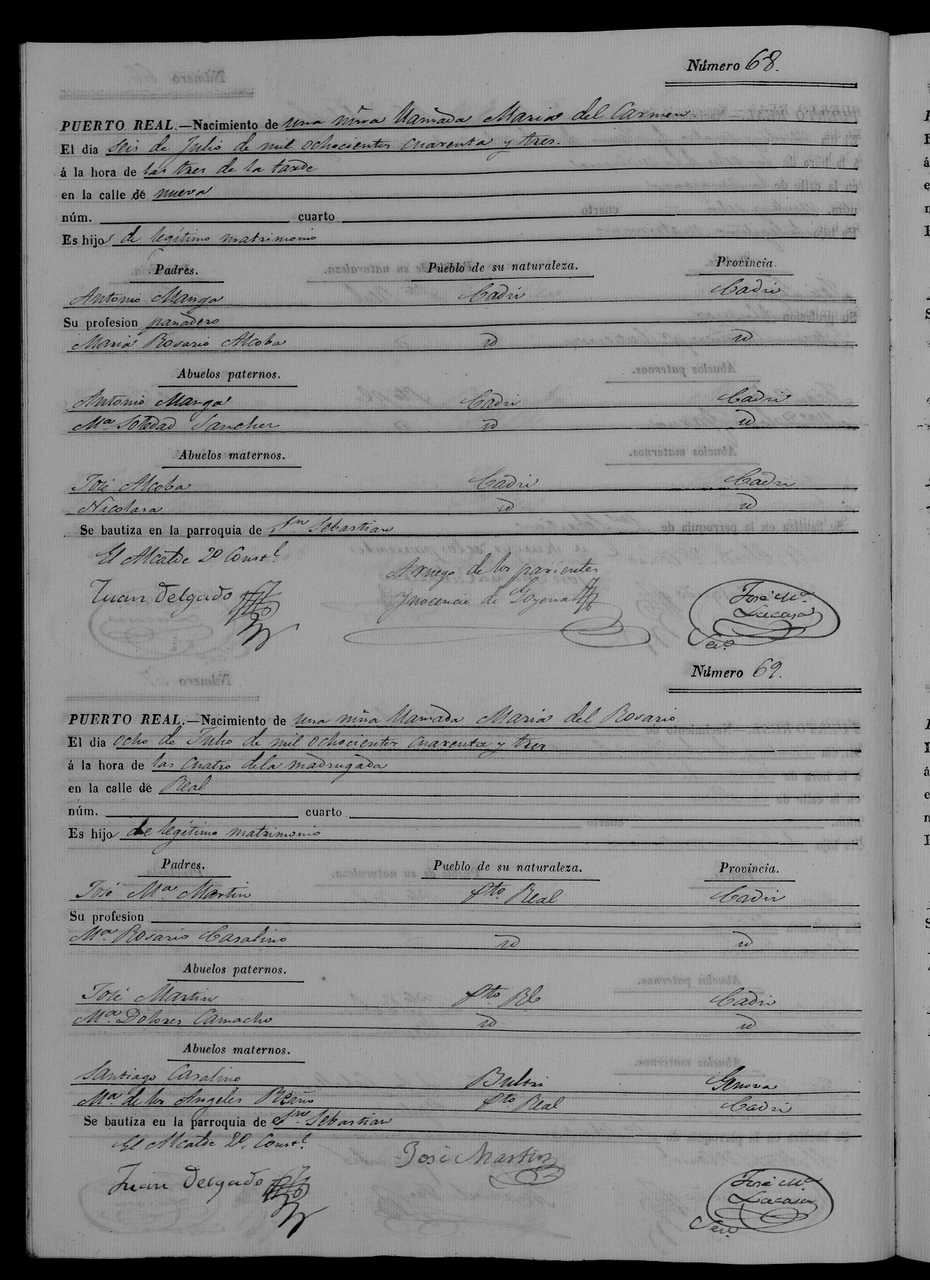 Número 68.
PUERTO REAL.—Nacimiento de una niña llamada Maria del Carmen.
El dia seis de Julio de mil ochocientos cuarenta y tres.
á la hora de las tres de la tarde
en la calle de nueva
núm. cuarto
Es hijo de legitimo matrimonio
Padres. Pueblo de su naturaleza. Provincia
Antonio Manga Cadiz Cadiz
Su profesion panadero
Maria Rosario Alcoba id id
Abuelos paternos.
Antonio Manga Cadiz Cadiz
Mª Soledad Sanchez id id
Abuelos maternos.
José Alcoba Cadiz Cadiz
Nicolasa id id
Se bautiza en la parroquia de Sn Sebastian
El Alcalde 2º Constl. A ruego de los parientes
Juan Delgado Inocencio de José Mª
Lacasa
Serº
Número 69.
PUERTO REAL.—Nacimiento de una niña llamada Maria del Rosario
El dia ocho de Julio de mil ochocientos cuarenta y tres
á la hora de las cuatro de la madrugada
en la calle de Real
núm. cuarto
Es hijo de legitimo matrimonio
Padres. Pueblo de su naturaleza. Provincia.
José Mª Martin Pto Real Cadiz
Su profesion
Mª Rosario Casalino id id
Abuelos paternos.
José Martin Pto Rl Cadiz
Mª Dolores Camacho id id
Abuelos maternos.
Santiago Casalino Genova
Mª de los Angeles Pto Real Cadiz
Se bautiza en la parroquia de Sn Sebastian
El Alcalde 2º Constl. José Martin
Juan Delgado José Mª
Lacasa
Serº